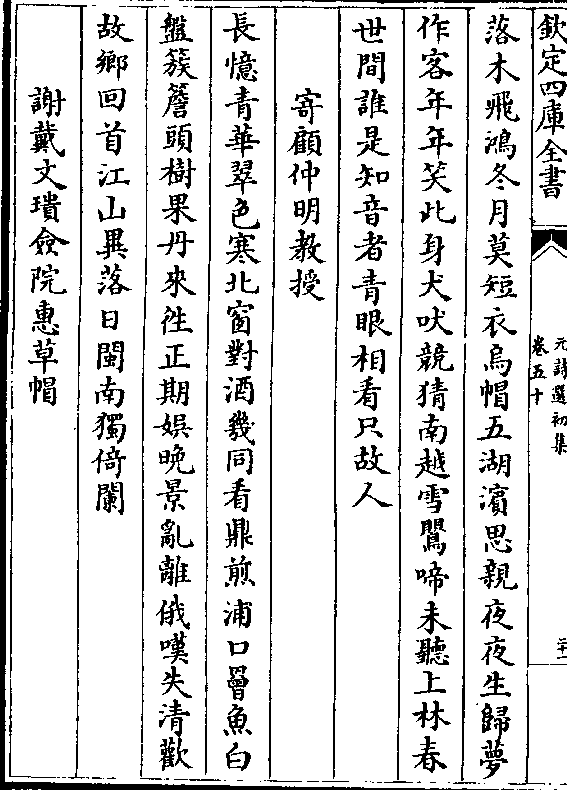 欽定四庫全書
元詩選初集
卷五十
二十一
落木飛鴻冬月莫短衣烏帽五湖濵思親夜夜生歸夢
作客年年笑此身犬吠競猜南越雪鶯啼未聽上林春
世間誰是知音者青眼相看只故人
寄顧仲明教授
長憶青華翠色寒北窗對酒幾同看鼎煎浦口罾魚白
盤簇簷頭樹果丹來徃正期娯晩景亂離俄嘆失清歡
故鄉回首江山異落日閩南獨倚闌
謝戴文璝僉院惠草帽